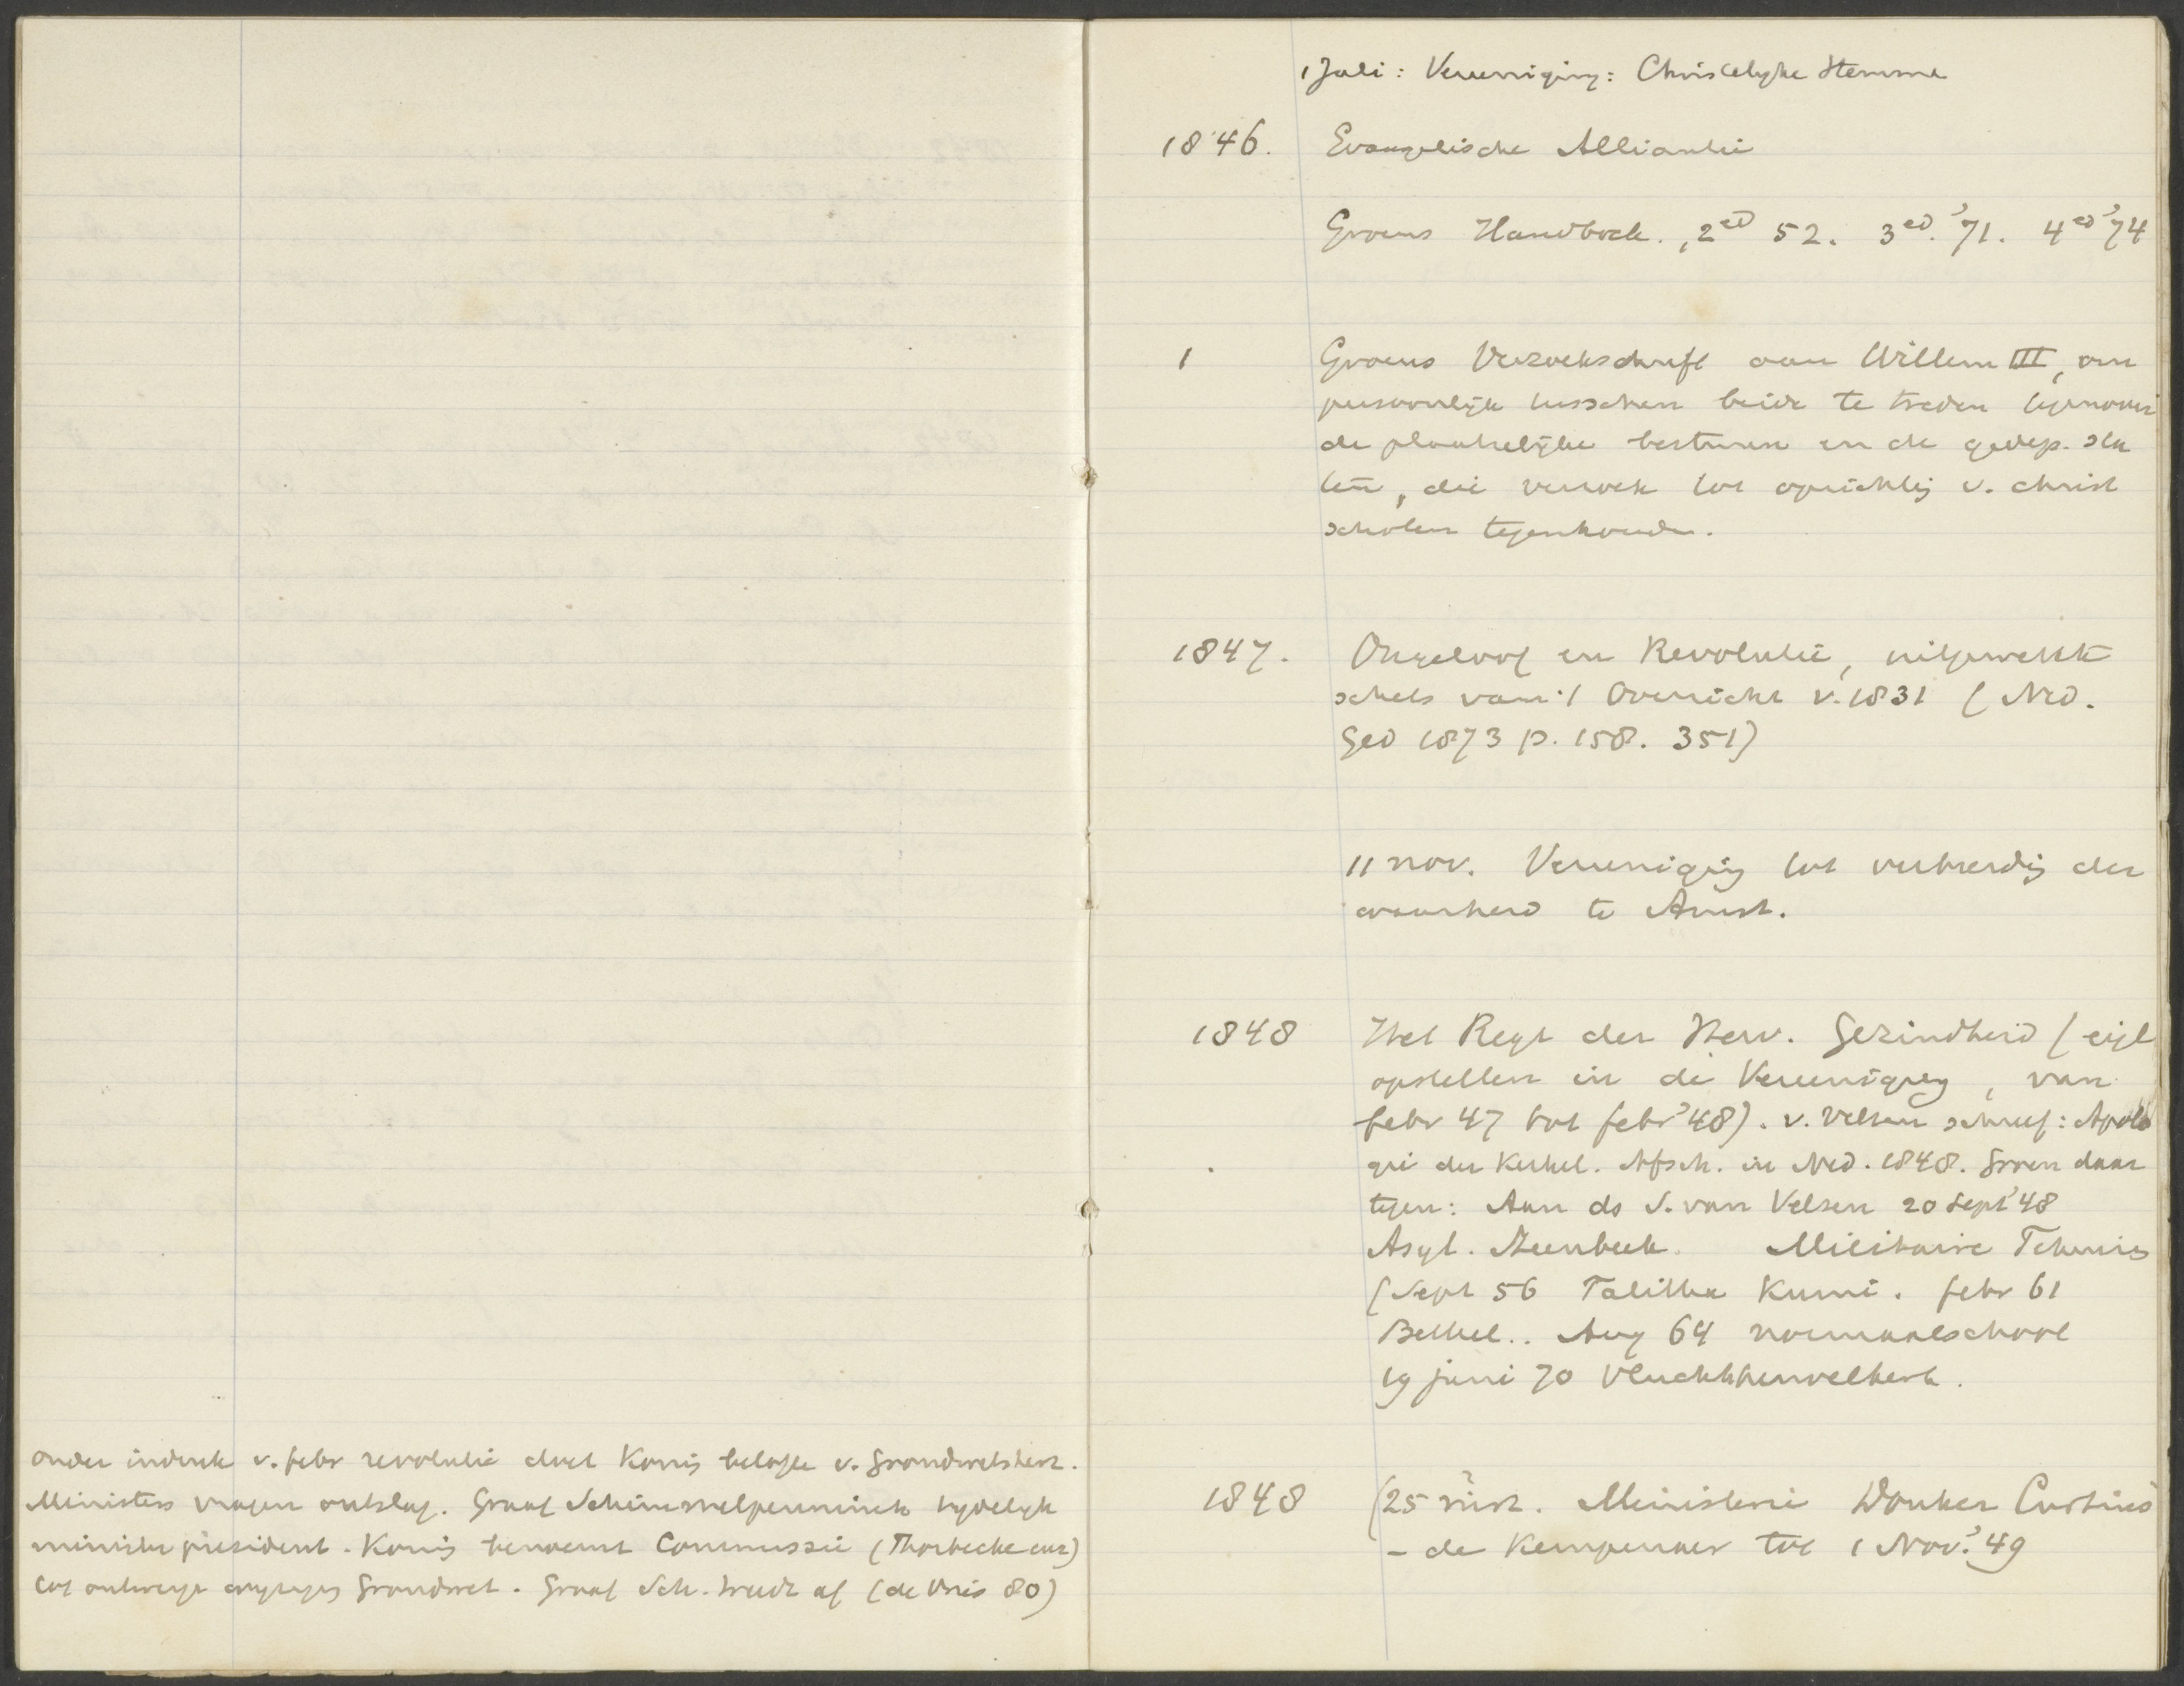 onder indruk v. febr revolutie doet Konig belofte v. Grondwetsherz.
Ministers vragen ontslag. Graaf Schimmelpenninck tydelyk
minister president. Konig benoemt Commissie (Thorbecke enz)
tot ontwerpe wyziging Grondwet. Graaf Sch. treedt af (de Vries 80)
1 Juli: Vereeniging: Christelyke Stemme
1846. Evangelische Alliantie
Groens Handboek. 2ed 52. 3ed. '71. 4ed '74
1 Groens Verzoekschrift aan Willem III, om
persoonlijk tusschen beide te treden tegenover
de plaatselijke besturen en de gedep. sta
ten, die verzoek tot oprichtig v. christ
scholen tegenhouden.
1847. Ongeloof en Revolutie, uitgewerkte
schets van 't Overzicht v. 1831 (Ned.
Ged 1873 p. 158. 351)
11 nov. Vereenigig tot verbreidig der
waarheid te Amst.
1848 Het Regt der Herv. Gezindheid (eigl
opstellen in de Vereeniging, van
febr 47 tot febr '48). v. Velzen schreef: Apolo
gie der Kerkel. Afsch. in Ned. 1848. Groen daar
tegen: Aan ds S. van Velzen 20 Sept '48
Asyl. Steenbeek. Militaire Tehuis
(Sept 56 Talitha Kumi. febr 61
Bethel.. Aug 64 normaalschool
19 juni 70 Vluchtheuvelkerk.
1848 (25 mrt. Ministerie Donker Curtius
- de Kempenaer tot 1 Nov. '49